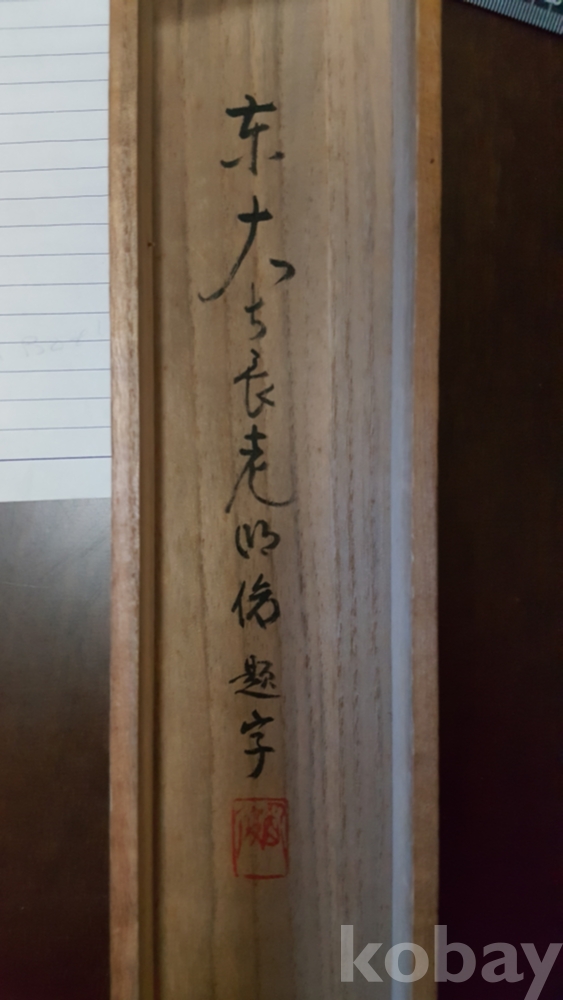 東大寺長老明俊題字
kobay